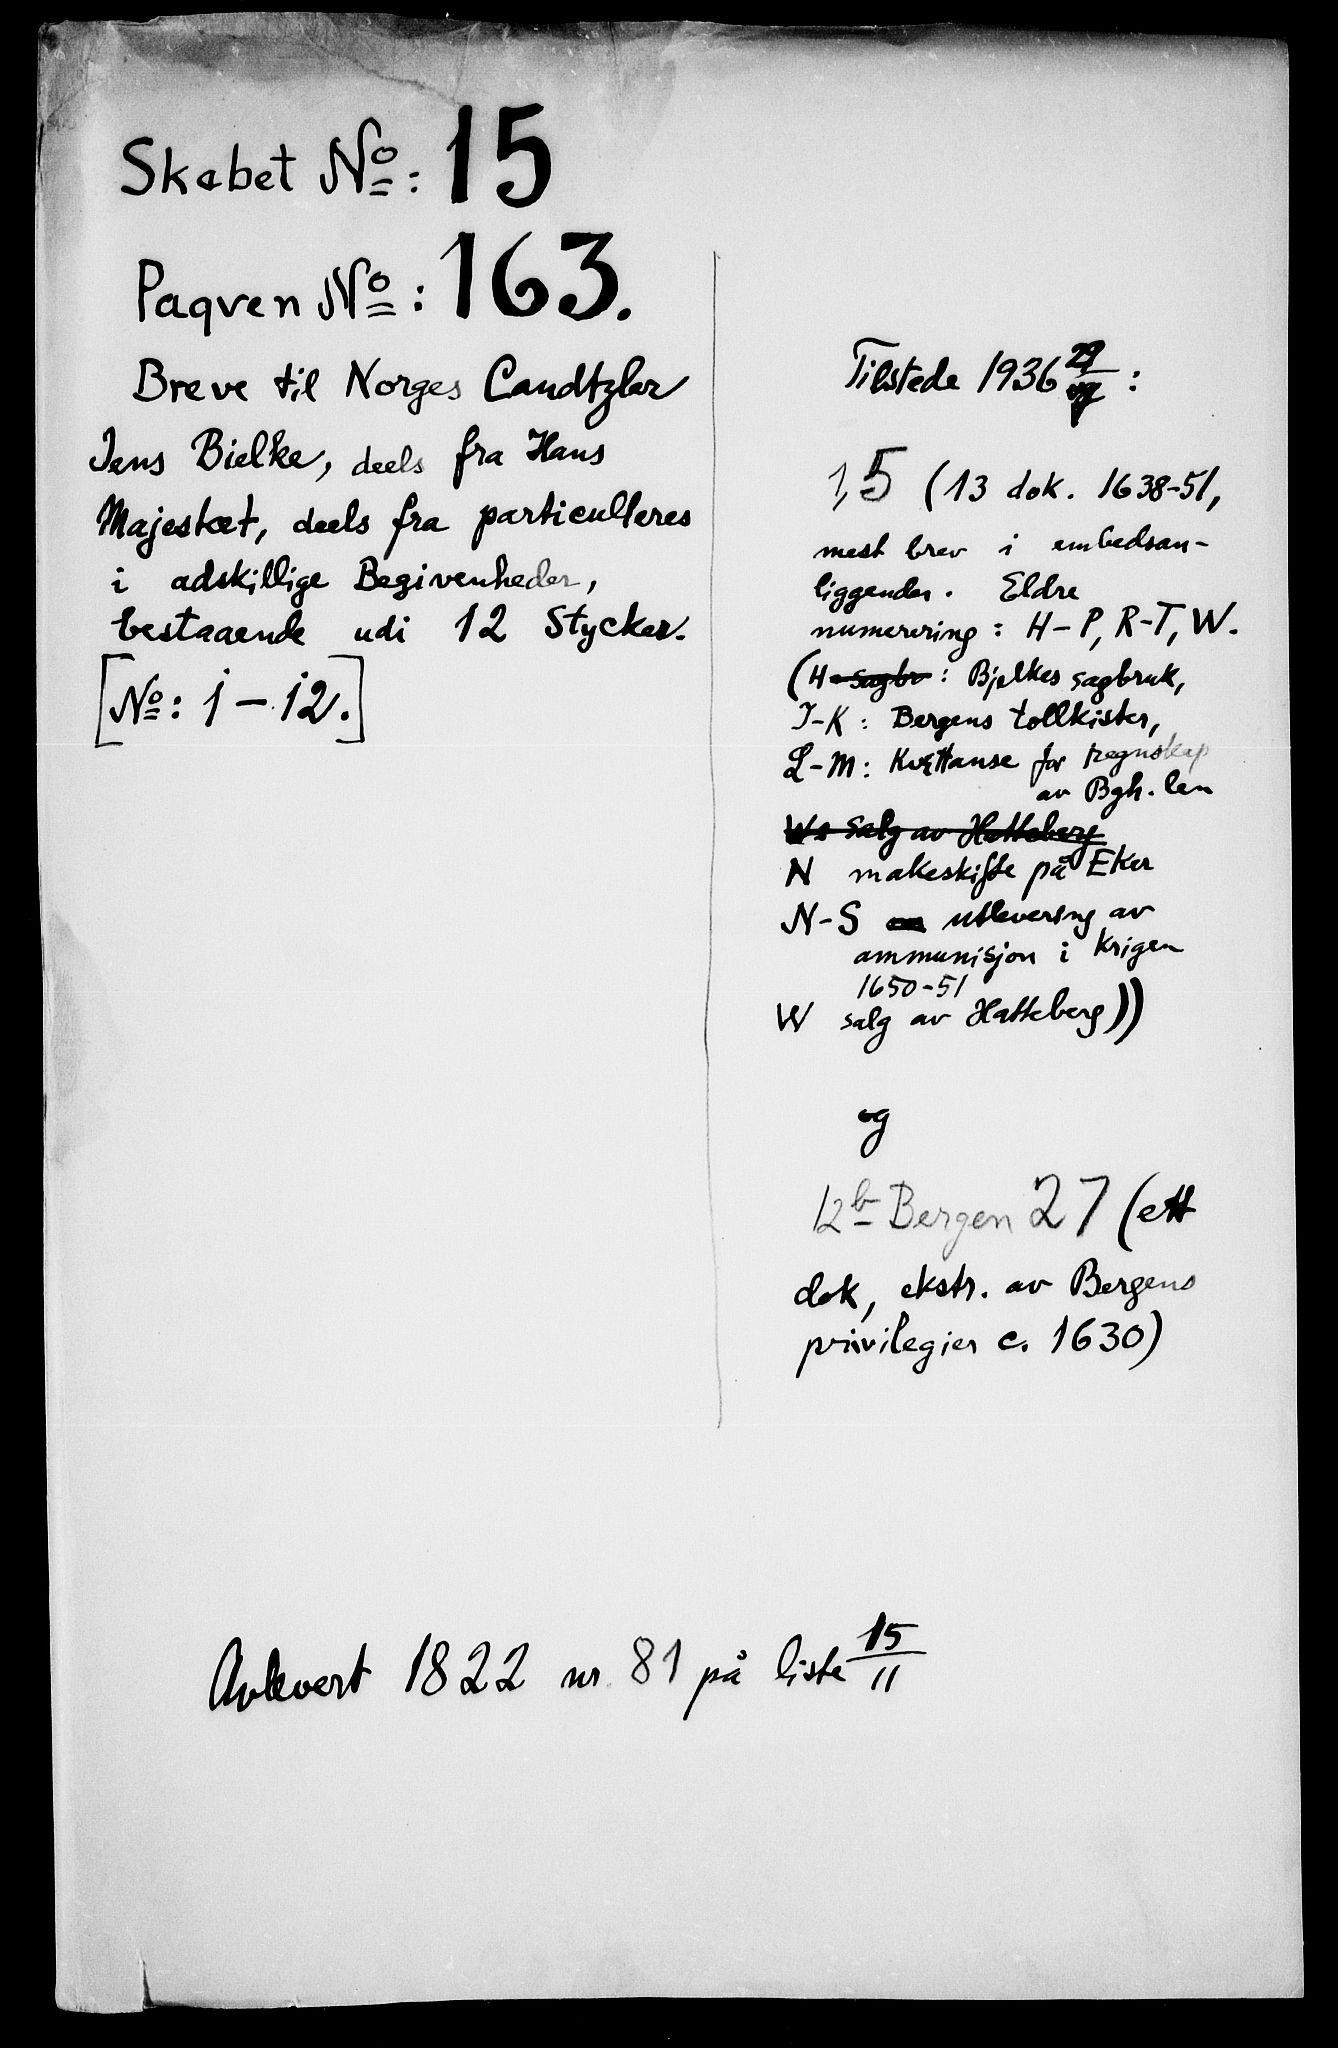 Skabet No: 15
Paqven No: 163.
Breve til Norges Candtzler
Jens Bielke, deels fra Hans
Majestæt, deels fra particulleres
i adskillige Begivenheder,
bestaaende udi 12 Stycker.
[No: 1 - 12.]
Tilstede 1936 29/ :
1,5 (13 dok. 1638-51,
mest brev i embedsan-
liggender. Eldre
numerering: H-P, R-T, W.
(H sagbr: Bjelkes sagbruk,
I-K: Bergens tollkister,
L-M: Kvittanse for regnskap
av Bgh. len
W: salg av Hatteberg
N makeskifte på Eker
N-S utlevering av
ammunisjon i krigen
1650-51
W salg av Hatteberg))
og
12b Bergen 27 (ett
dok, ekstr. av Bergens
privilegier c. 1630)
Avlevert 1822 nr. 81 på liste 15/11